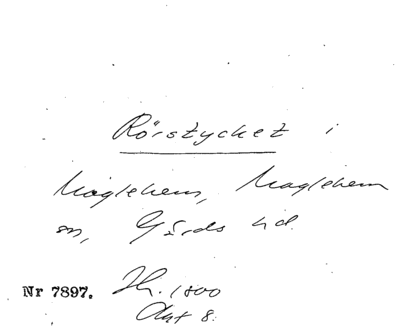 Rörstycket i
Maglehem, Maglehem
sn, Gärds hd.
Nr 7897. H. 1800
Akt 8.